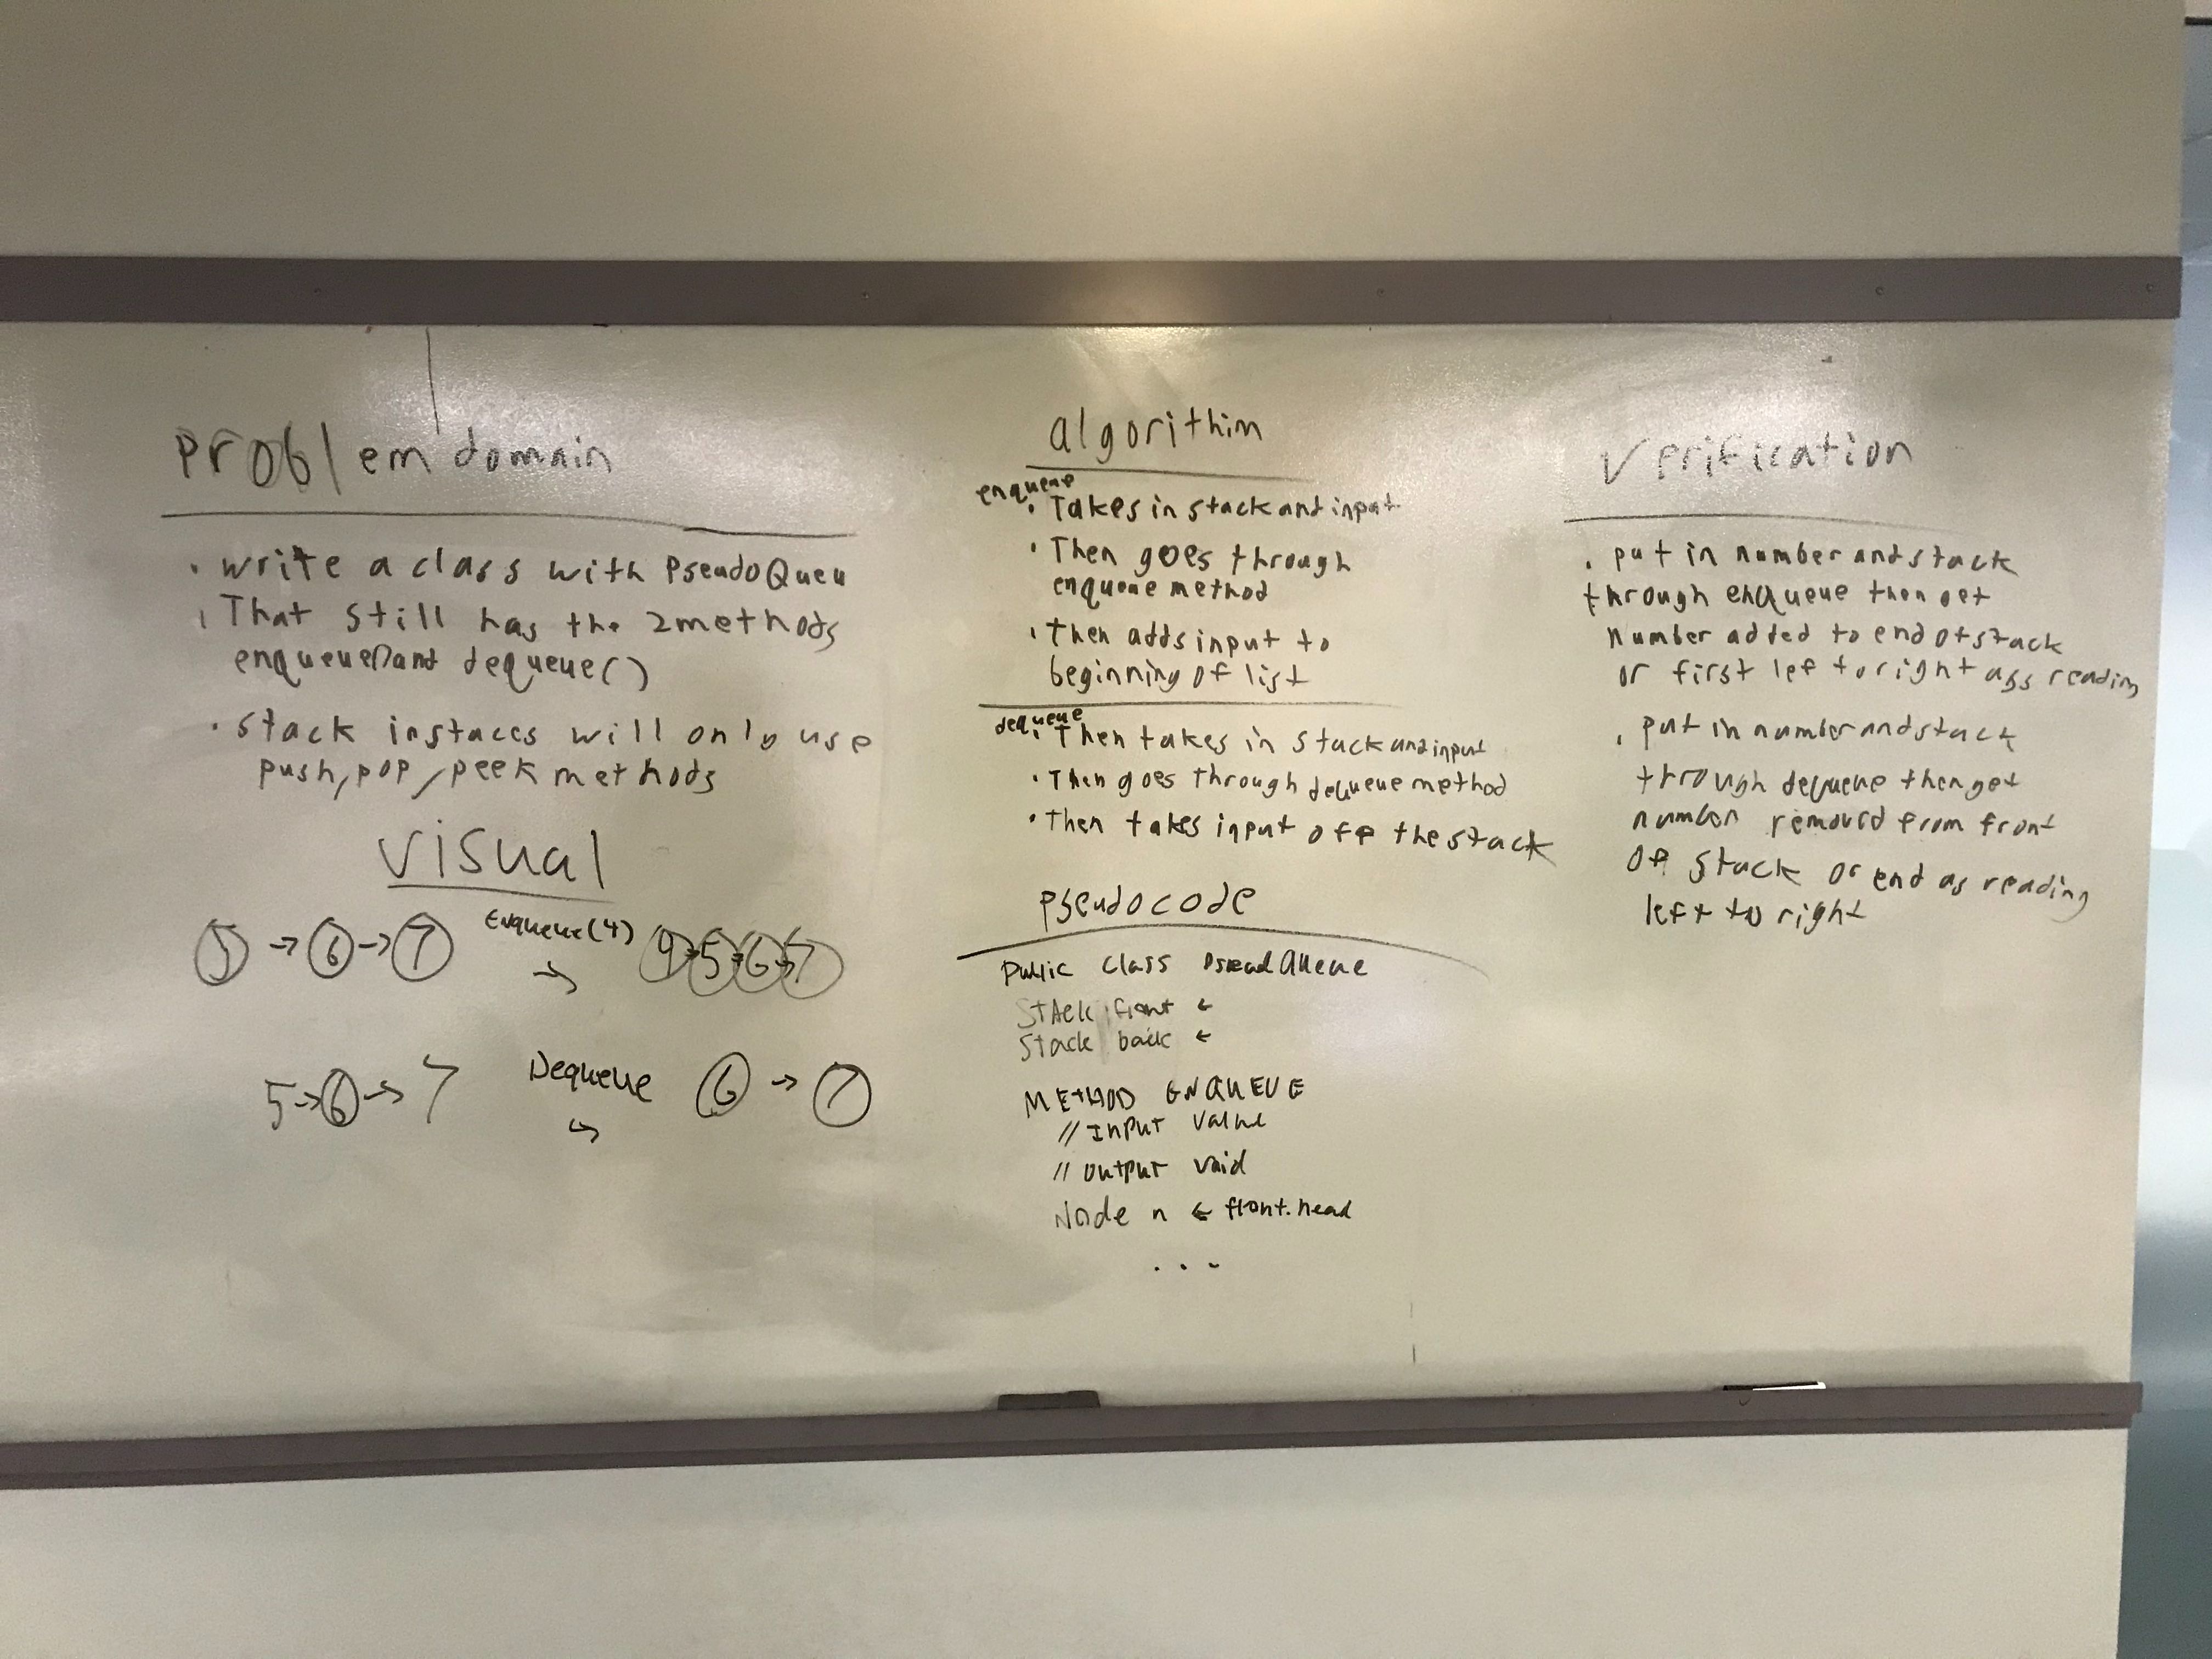 problem domain
· write a class with PseudoQueu
· That still has the 2 methods
enqueue() and dequeue()
· stack instaces will only use
push, pop, peek methods
visual
5 → 6 → 7 Enqueue(4) → 4 → 5 → 6 → 7
5 → 6 → 7 Dequeue → 6 → 7
algorithim
enqueue
· Takes in stack and input
· Then goes through
enqueue method
· Then adds input to
beginning of list
dequeue
· Then takes in stack and input
· Then goes through dequeue method
· Then takes input off the stack
pseudocode
public class PseudoQueue
Stack front ←
Stack back ←
METHOD ENQUEUE
// INPUT value
// output void
Node n ← front.head
...
Verification
· put in number and stack
through enqueue then get
number added to end of stack
or first left to right ass reading
· put in number and stack
through dequeue then get
number removed from front
of stack or end as reading
left to right